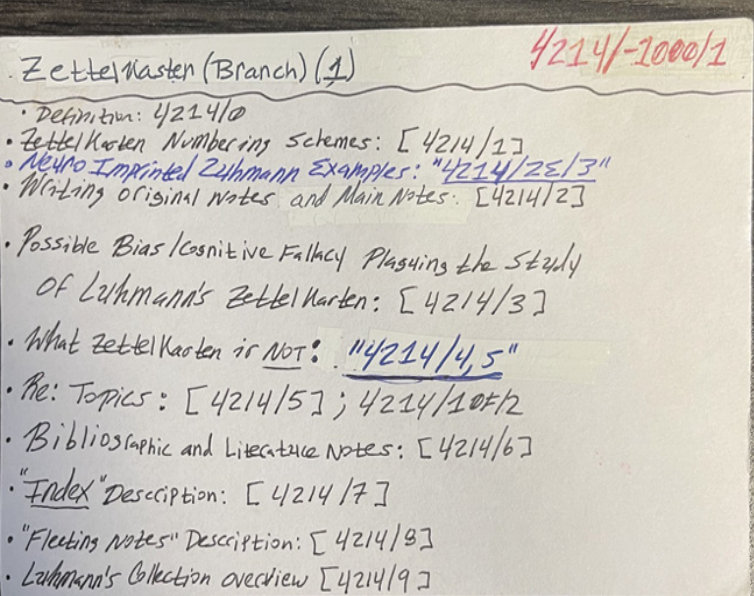 Zettelkasten (Branch) (1)
4214/-1000/1
• Definition: 4214/0
• Zettelkasten Numbering Schemes: [4214/1]
• Neuro Imprinted Luhmann Examples: "4214/2E/3"
• Writing Original Notes and Main Notes: [4214/2]
• Possible Bias/Cognitive Fallacy Plaguing the Study
of Luhmann's Zettelkasten: [4214/3]
• What Zettelkasten is NOT: "4214/4,5"
• Re: Topics: [4214/5]; 4214/10F/2
• Bibliographic and Literature Notes: [4214/6]
• "Index" Description: [4214/7]
• "Fleeting Notes" Description: [4214/8]
• Luhmann's Collection overview [4214/9]